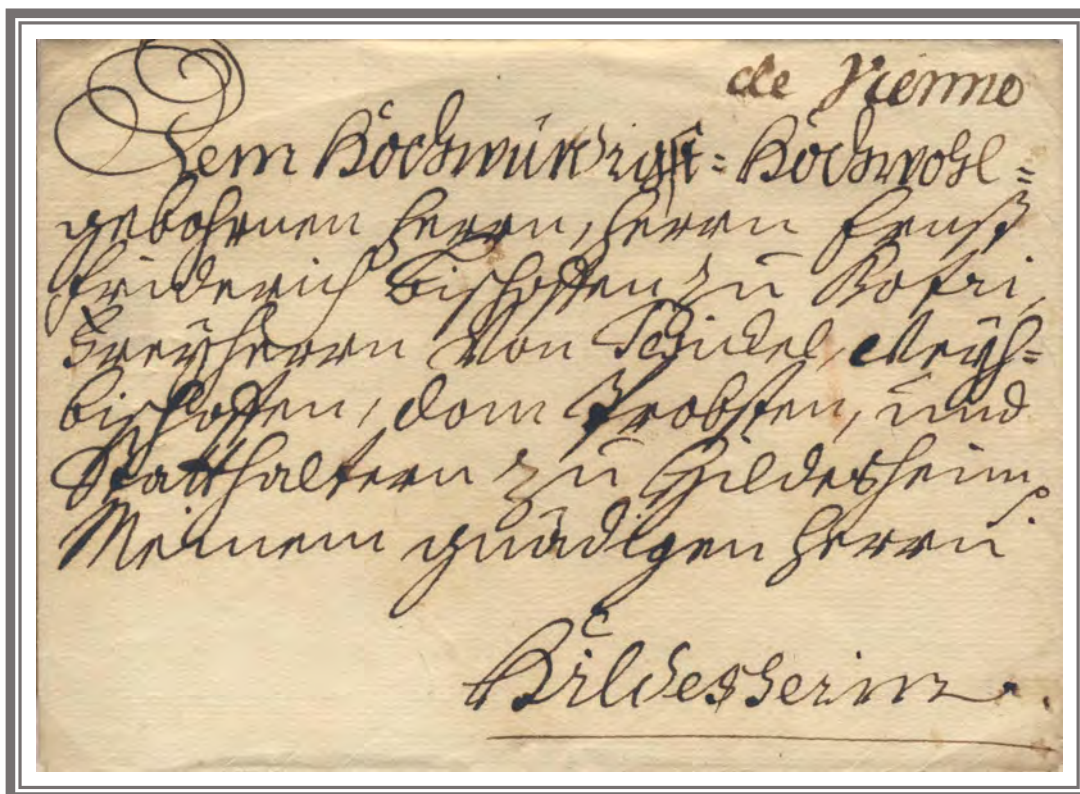 de Vienne
Dem Hochwürdigst= Hochwohl=
gebohrnen Herrn, Herrn Ernst
Friderich Bischoffen zu
Freyherrn Von Weyh=
bischoffen, dom Probsten, und
Statthaltern zu Hildesheim,
Meinem gnädigen Herrn
Hildesheim.